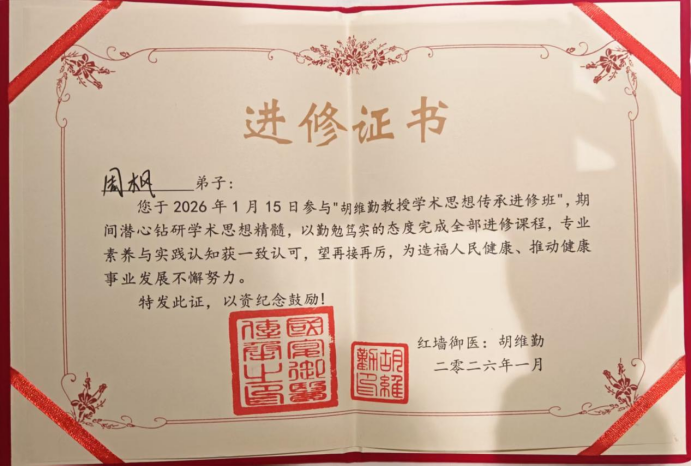 进修证书
周枫 弟子：
您于 2026 年 1 月 15 日参与"胡维勤教授学术思想传承进修班"，期
间潜心钻研学术思想精髓，以勤勉笃实的态度完成全部进修课程，专业
素养与实践认知获一致认可，望再接再厉，为造福人民健康、推动健康
事业发展不懈努力。
特发此证，以资纪念鼓励！
红墙御医：胡维勤
二零二六年一月
國家御醫
傳承之印
胡維
勤印